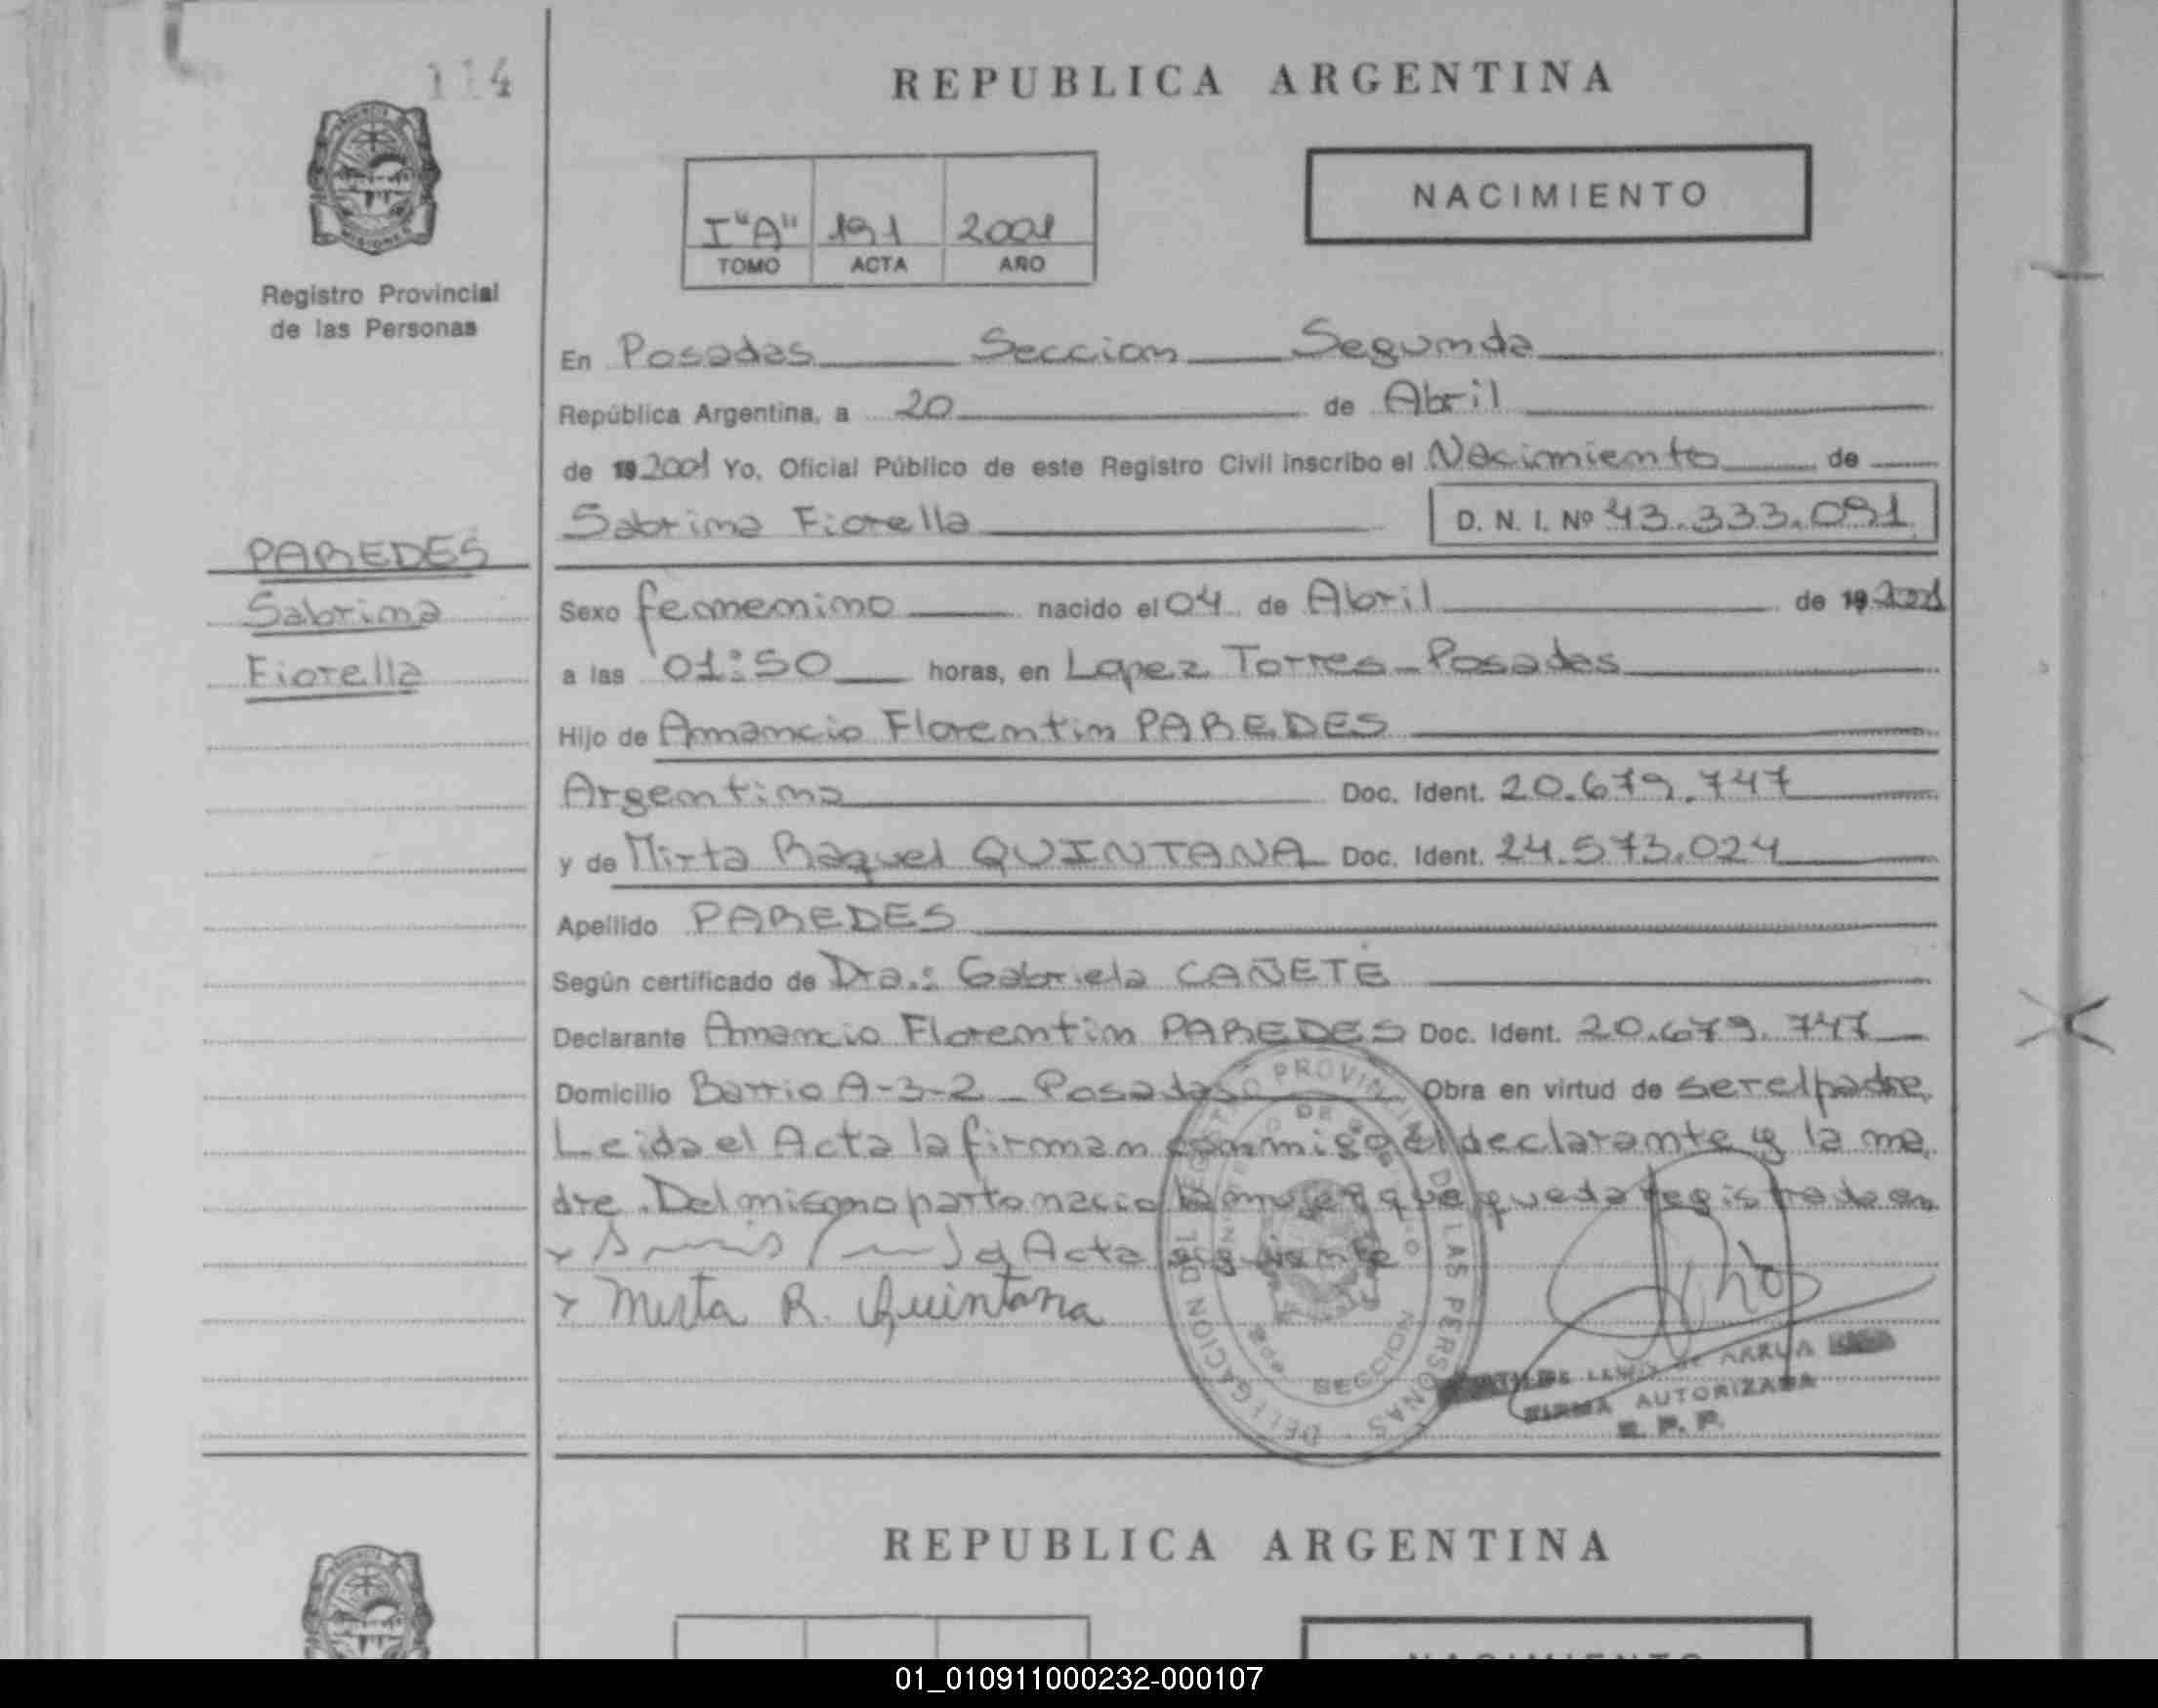 114
REPUBLICA ARGENTINA
NACIMIENTO
I "A" 191 2001
TOMO ACTA AÑO
Registro Provincial
de las Personas
En Posadas Seccion Segunda
República Argentina, a 20 de Abril
de 19 2001 Yo, Oficial Público de este Registro Civil inscribo el Nacimiento de
Sabrina Fiorella D. N. I. Nº 43.333.091
PAREDES
Sabrina
Fiorella
Sexo femenino nacido el 04 de Abril de 19 2001
a las 01:50 horas, en Lopez Torres - Posadas
Hijo de Amancio Florentin PAREDES
Argentina Doc. Ident. 20.679.747
y de Mirta Raquel QUINTANA Doc. Ident. 24.573.024
Apellido PAREDES
Según certificado de Dra.: Gabriela CAÑETE
Declarante Amancio Florentin PAREDES Doc. Ident. 20.679.747
Domicilio Barrio A-3-2 - Posadas Obra en virtud de ser el padre.
Leida el Acta la firman conmigo el declarante y la ma
dre. Del mismo parto nacio la mujer que queda registrada en
el Acta siguiente
Mirta R. Quintana
DELEGACION DEL REGISTRO PROVINCIAL DE LAS PERSONAS
SECCION
LEWIS de ARRUA
FIRMA AUTORIZADA
R. P. P.
REPUBLICA ARGENTINA
NACIMIENTO
01_010911000232-000107